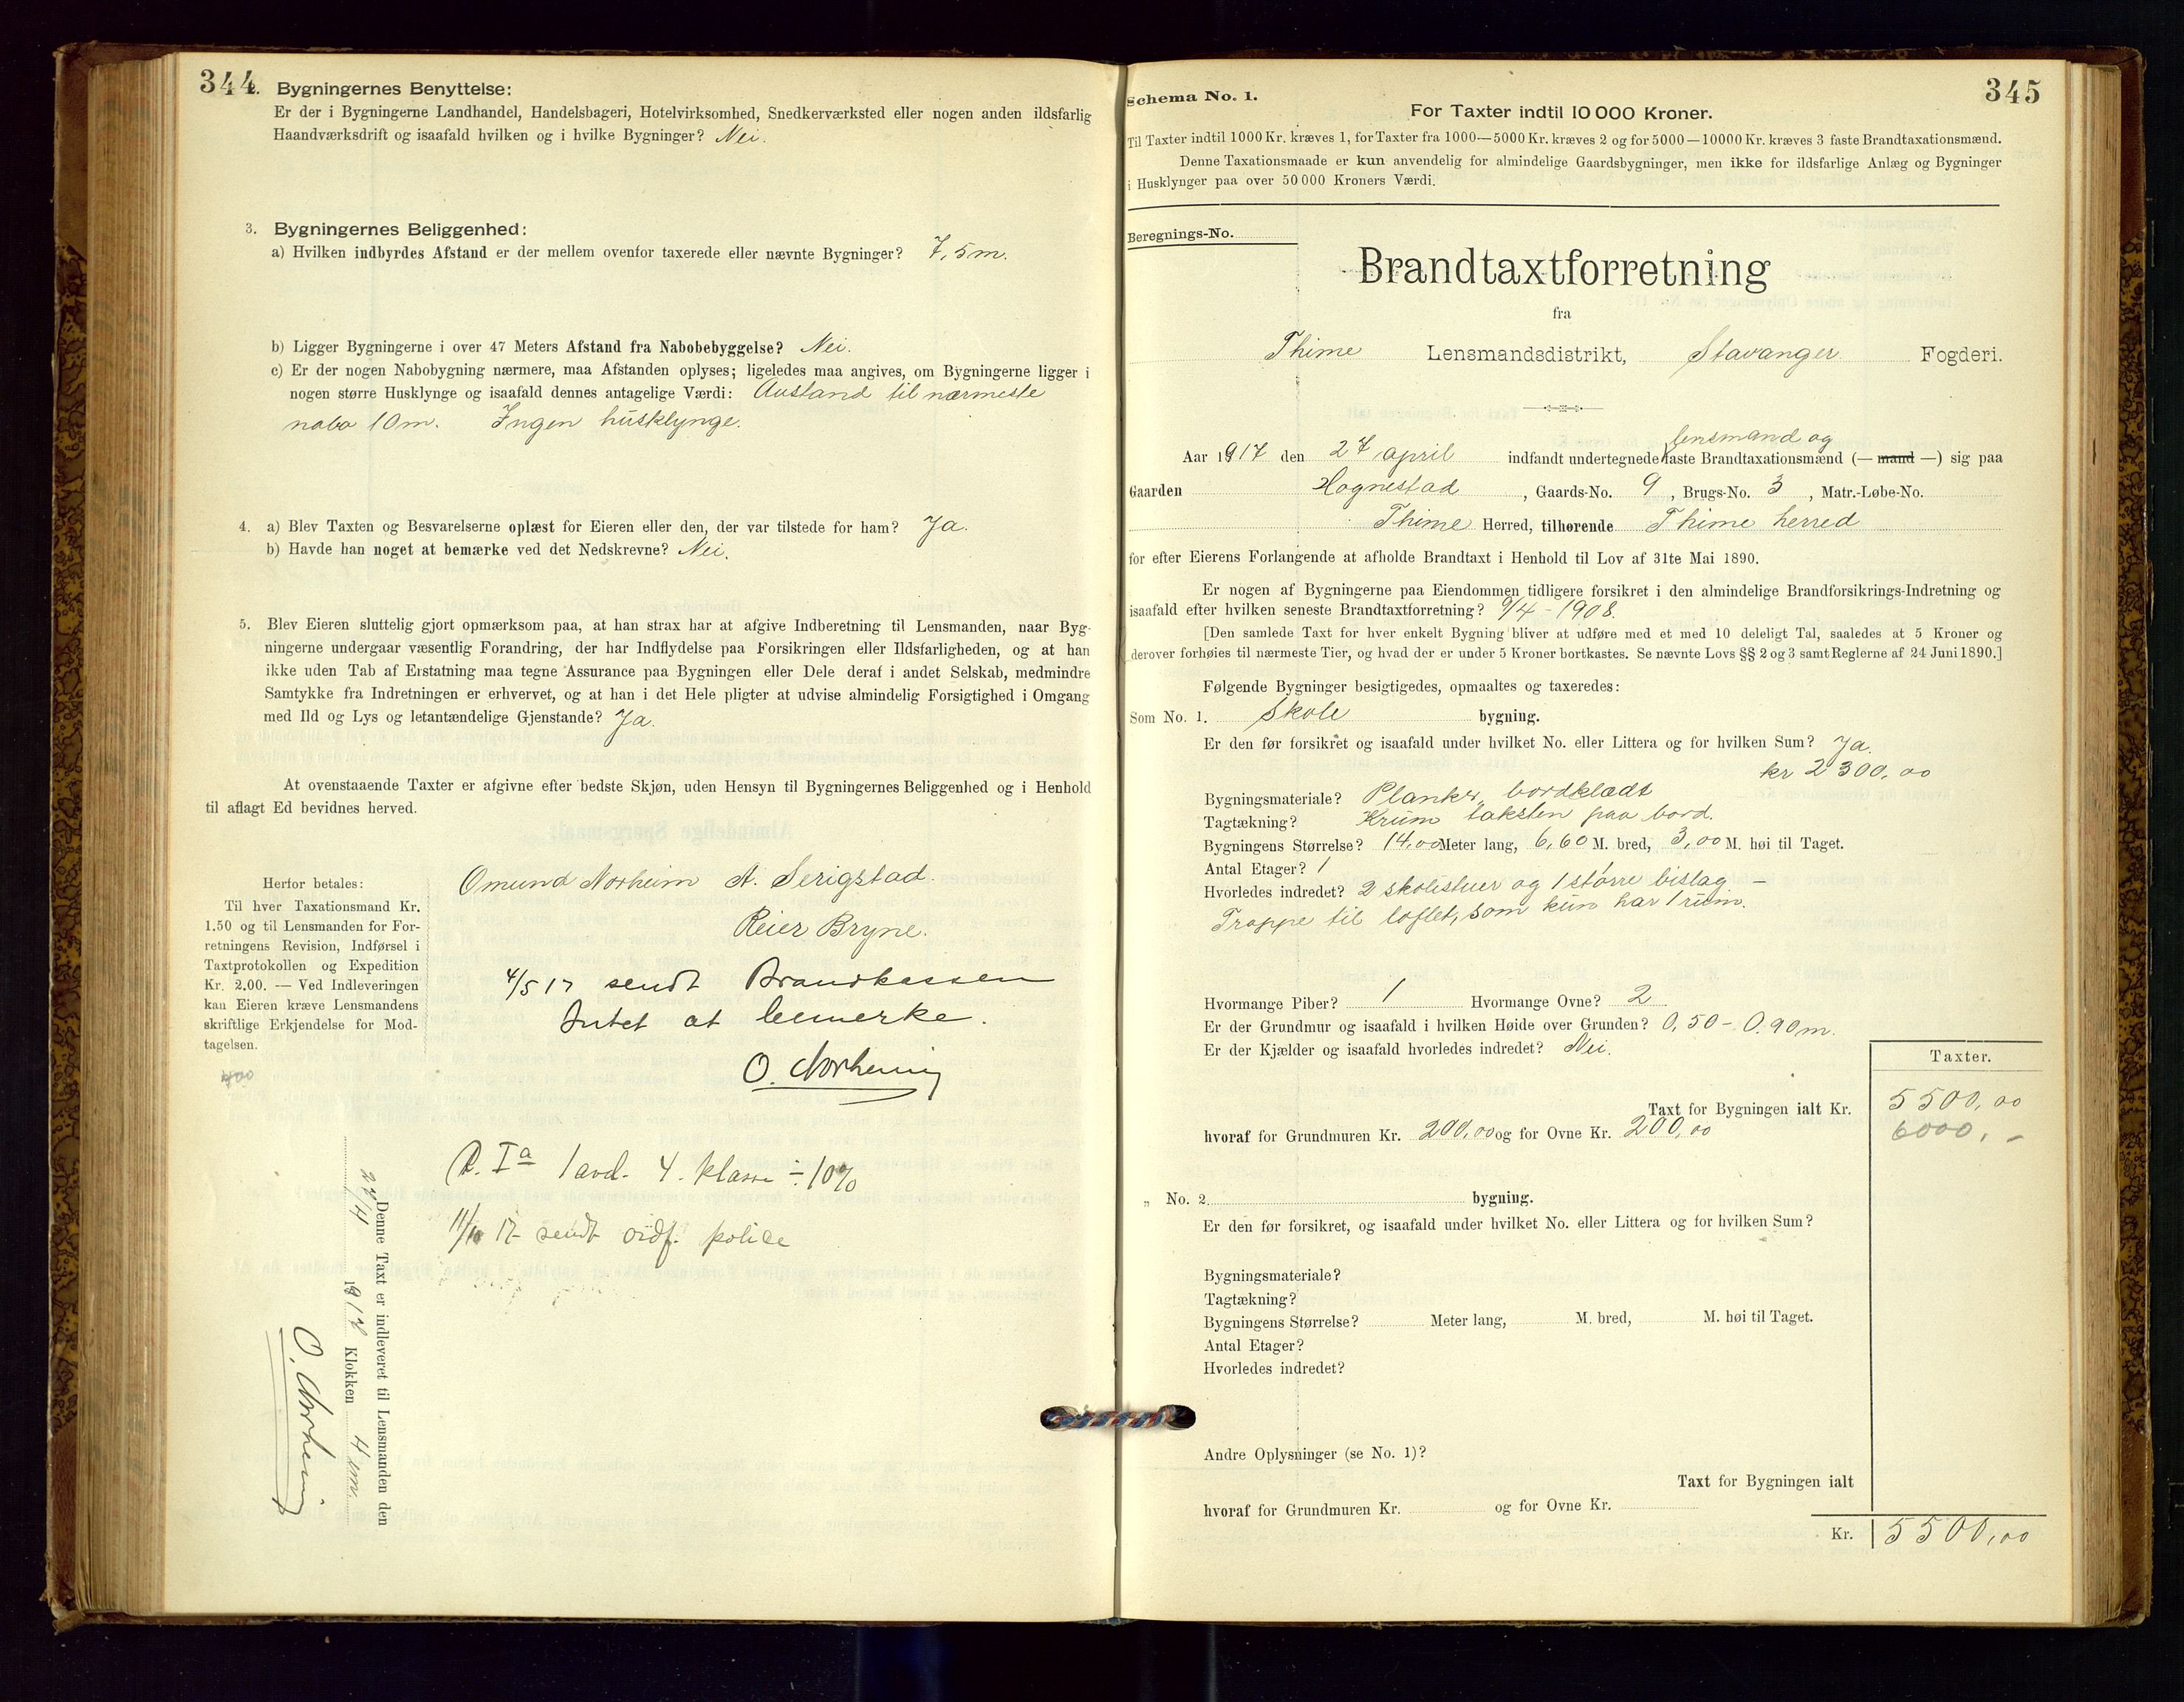 344
2. Bygningernes Benyttelse:
Er der i Bygningerne Landhandel, Handelsbageri, Hotelvirksomhed, Snedkerværksted eller nogen anden ildsfarlig
Haandværksdrift og isaafald hvilken og i hvilke Bygninger? Nei.
3. Bygningernes Beliggenhed:
a) Hvilken indbyrdes Afstand er der mellem ovenfor taxerede eller nævnte Bygninger? 7,5 m.
b) Ligger Bygningerne i over 47 Meters Afstand fra Nabobebyggelse? Nei.
c) Er der nogen Nabobygning nærmere, maa Afstanden oplyses; ligeledes maa angives, om Bygningerne ligger i
nogen større Husklynge og isaafald dennes antagelige Værdi: Avstand til nærmeste
nabo 10 m. Ingen husklynge.
4. a) Blev Taxten og Besvarelserne oplæst for Eieren eller den, der var tilstede for ham? Ja.
b) Havde han noget at bemærke ved det Nedskrevne? Nei.
5. Blev Eieren sluttelig gjort opmærksom paa, at han strax har at afgive Indberetning til Lensmanden, naar Byg-
ningerne undergaar væsentlig Forandring, der har Indflydelse paa Forsikringen eller Ildsfarligheden, og at han
ikke uden Tab af Erstatning maa tegne Assurance paa Bygningen eller Dele deraf i andet Selskab, medmindre
Samtykke fra Indretningen er erhvervet, og at han i det Hele pligter at udvise almindelig Forsigtighed i Omgang
med Ild og Lys og letantændelige Gjenstande? Ja.
At ovenstaaende Taxter er afgivne efter bedste Skjøn, uden Hensyn til Bygningernes Beliggenhed og i Henhold
til aflagt Ed bevidnes herved.
Omund Norheim A. Serigstad.
Reier Bryne.
4/5 17 sendt Brandkassen
Intet at bemerke.
O. Norheim
Herfor betales:
Til hver Taxationsmand Kr.
1.50 og til Lensmanden for For-
retningens Revision, Indførsel i
Taxtprotokollen og Expedition
Kr. 2.00. — Ved Indleveringen
kan Eieren kræve Lensmandens
skriftlige Erkjendelse for Mod-
tagelsen.
Ia 1 avd. 4. klasse ÷ 10%
17 sendt police
Denne Taxt er indleveret til Lensmanden den
27/4 1917 Klokken 4 em.
O. Norheim
345
Schema No. 1.
For Taxter indtil 10 000 Kroner.
Til Taxter indtil 1000 Kr. kræves 1, for Taxter fra 1000—5000 Kr. kræves 2 og for 5000—10000 Kr. kræves 3 faste Brandtaxationsmænd.
Denne Taxationsmaade er kun anvendelig for almindelige Gaardsbygninger, men ikke for ildsfarlige Anlæg og Bygninger
i Husklynger paa over 50 000 Kroners Værdi.
Beregnings-No.
Brandtaxtforretning
fra
Thime Lensmandsdistrikt, Stavanger Fogderi.
lensmand og
Aar 1917 den 27 april indfandt undertegnede faste Brandtaxationsmænd (— mand —) sig paa
Gaarden Hognestad, Gaards-No. 9, Brugs-No. 3, Matr.-Løbe-No.
Thime Herred, tilhørende Thime herred
for efter Eierens Forlangende at afholde Brandtaxt i Henhold til Lov af 31te Mai 1890.
Er nogen af Bygningerne paa Eiendommen tidligere forsikret i den almindelige Brandforsikrings-Indretning og
isaafald efter hvilken seneste Brandtaxtforretning? 9/4 - 1908.
[Den samlede Taxt for hver enkelt Bygning bliver at udføre med et med 10 deleligt Tal, saaledes at 5 Kroner og
derover forhøies til nærmeste Tier, og hvad der er under 5 Kroner bortkastes. Se nævnte Lovs §§ 2 og 3 samt Reglerne af 24 Juni 1890.]
Følgende Bygninger besigtigedes, opmaaltes og taxeredes:
Som No. 1. Skole bygning.
Er den før forsikret og isaafald under hvilket No. eller Littera og for hvilken Sum? Ja.
kr 2300,00
Bygningsmateriale? Planker, bordklædt
Tagtækning? Krum taksten paa bord.
Bygningens Størrelse? 14,00 Meter lang, 6,60 M. bred, 3,00 M. høi til Taget.
Antal Etager? 1
Hvorledes indredet? 2 skolestuer og 1 større bislag —
Trappe til loftet, som kun har 1 rum.
Hvormange Piber? 1 Hvormange Ovne? 2
Er der Grundmur og isaafald i hvilken Høide over Grunden? 0,50 - 0,90 m.
Er der Kjælder og isaafald hvorledes indredet? Nei.
Taxter.
Taxt for Bygningen ialt Kr. 5500,00
hvoraf for Grundmuren Kr. 200,00 og for Ovne Kr. 200,00 6000,-
„ No. 2. bygning.
Er den før forsikret, og isaafald under hvilket No. eller Littera og for hvilken Sum?
Bygningsmateriale?
Tagtækning?
Bygningens Størrelse? Meter lang, M. bred, M. høi til Taget.
Antal Etager?
Hvorledes indredet?
Andre Oplysninger (se No. 1)?
Taxt for Bygningen ialt
hvoraf for Grundmuren Kr. og for Ovne Kr.
Kr. 5500,00